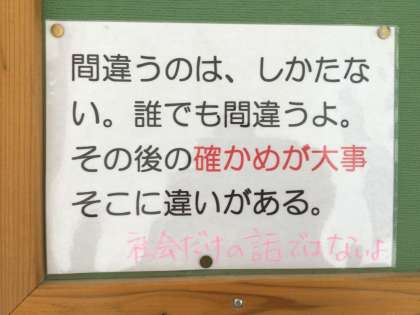 間違うのは、しかたな
い。誰でも間違うよ。
その後の確かめが大事
そこに違いがある。
社会だけの話ではないよ